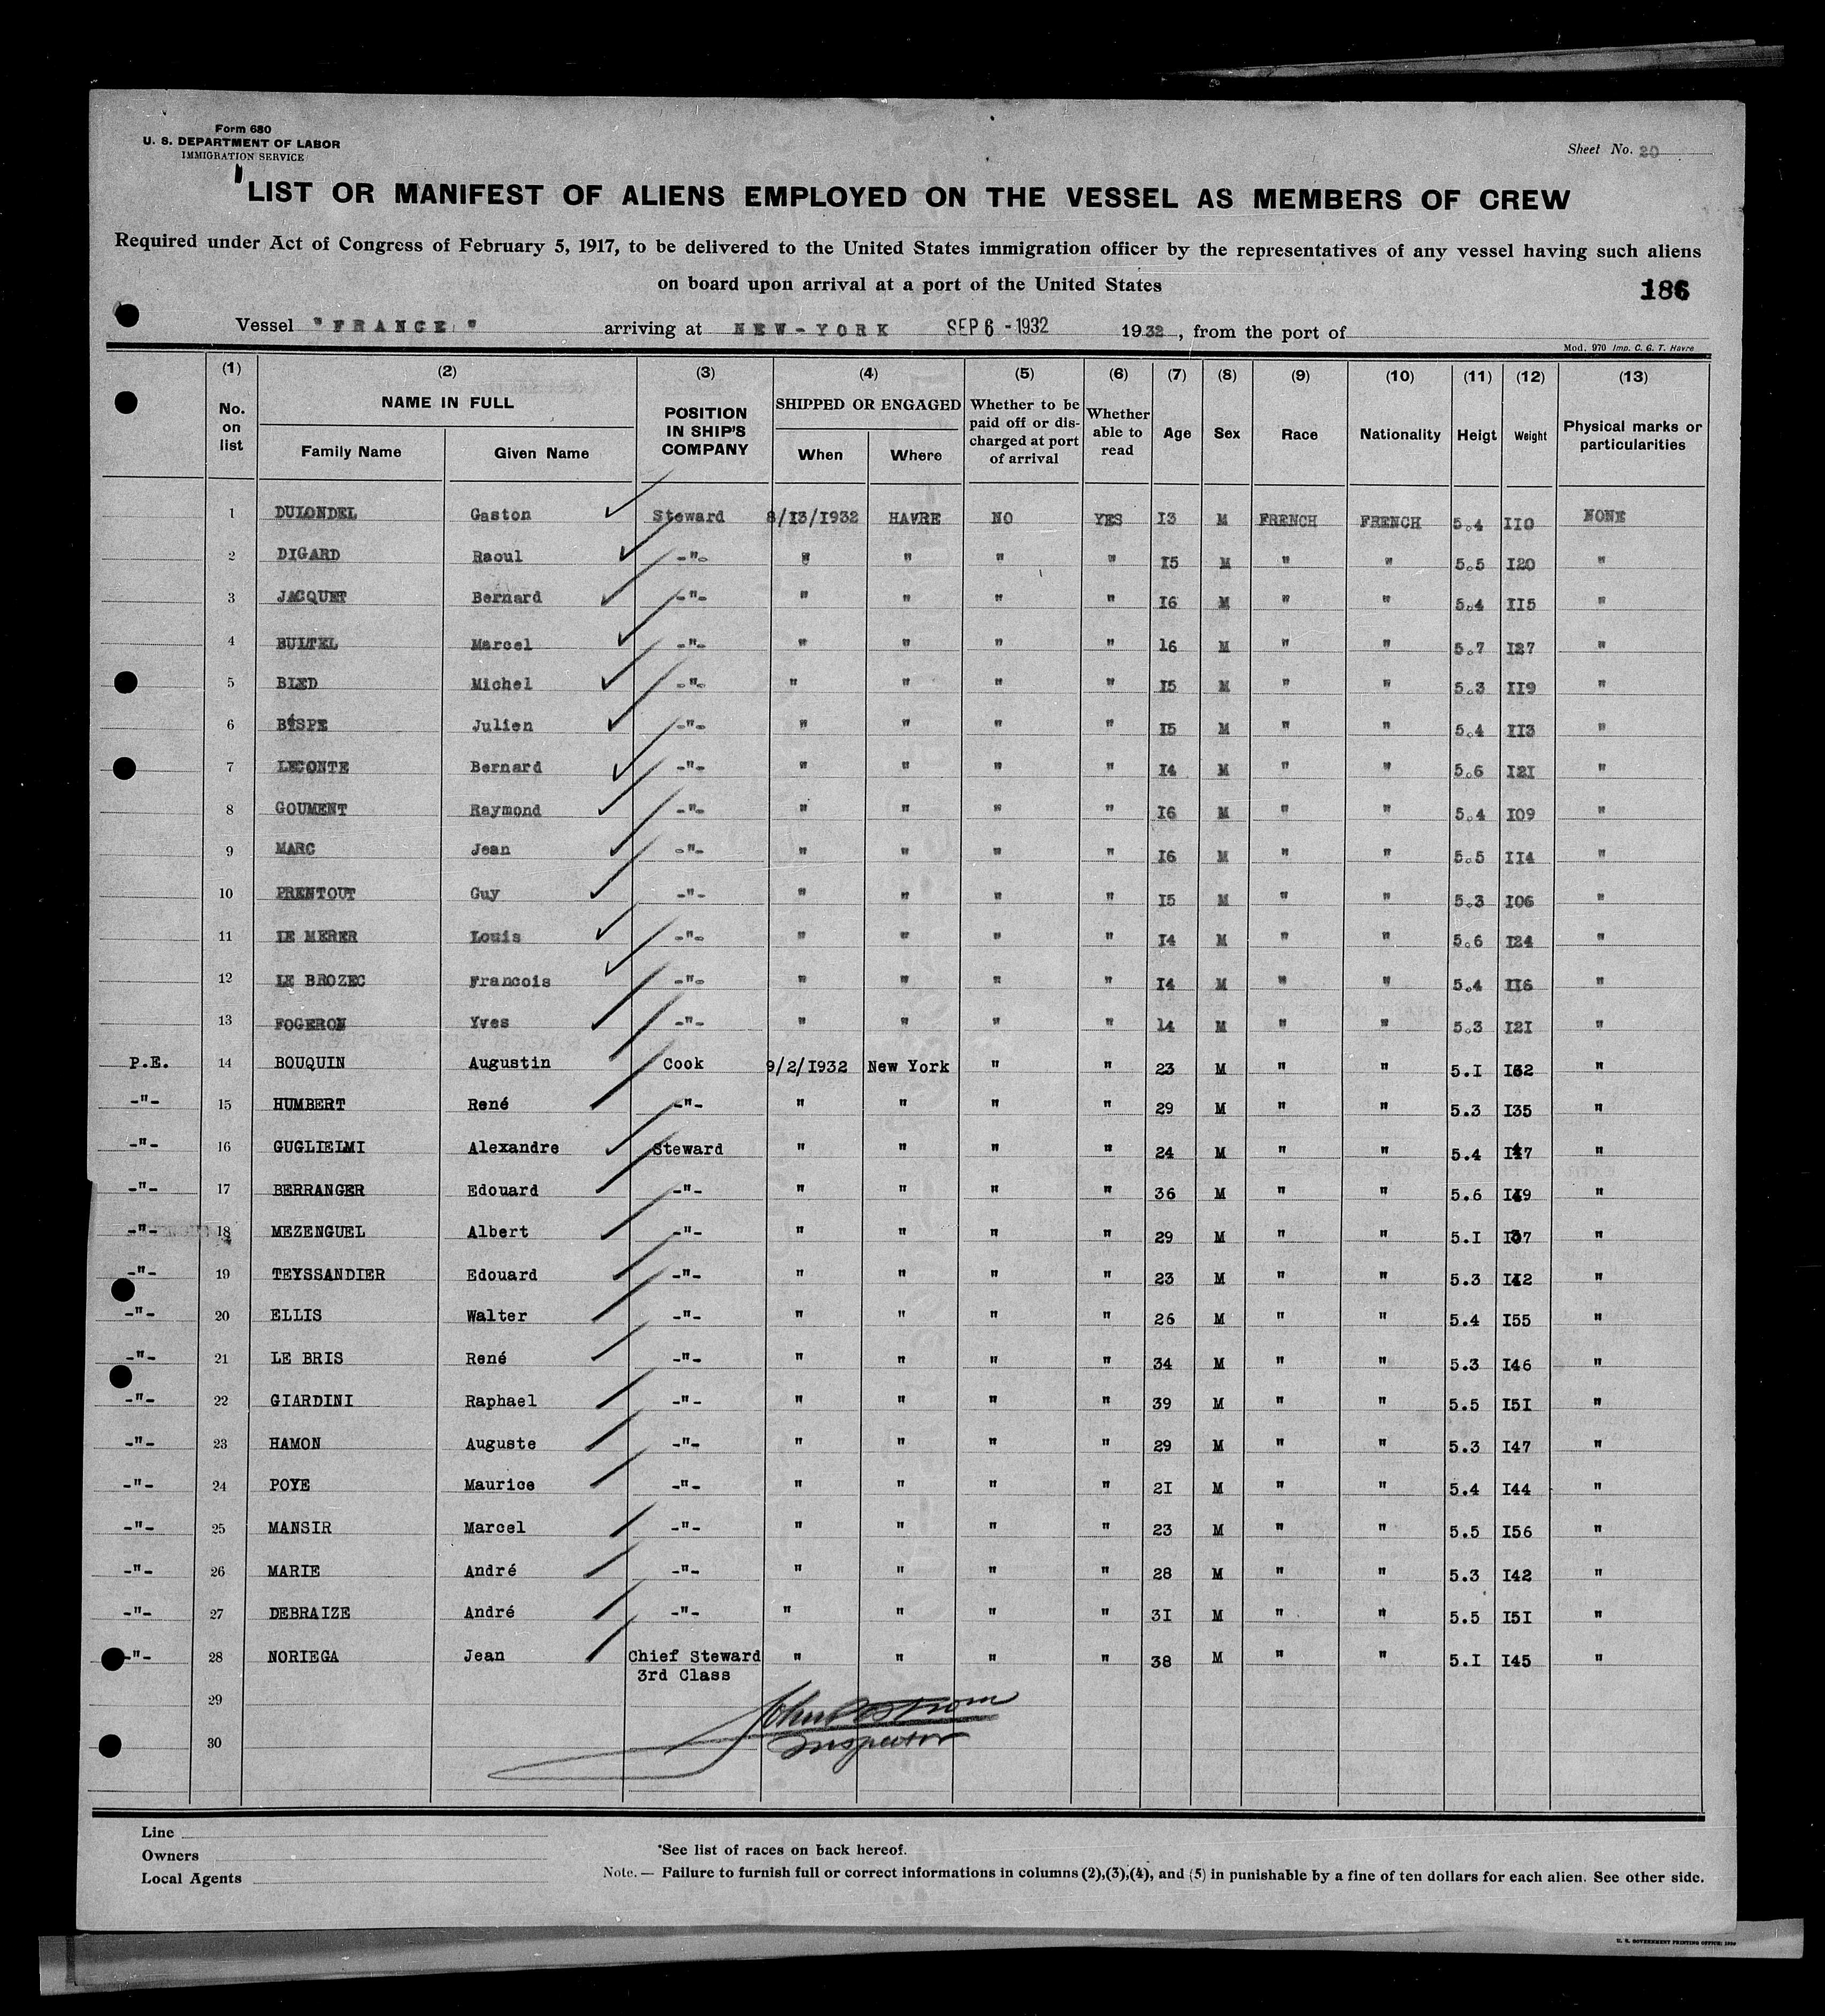 Form 680
U. S. DEPARTMENT OF LABOR
IMMIGRATION SERVICE
Sheet No. 20
LIST OR MANIFEST OF ALIENS EMPLOYED ON THE VESSEL AS MEMBERS OF CREW
Required under Act of Congress of February 5, 1917, to be delivered to the United States immigration officer by the representatives of any vessel having such aliens
on board upon arrival at a port of the United States
186
Vessel "FRANCE" arriving at NEW-YORK SEP 6 - 1932 1932, from the port of
Mod. 970 Imp. C. G. T. Havre
(1) (2) (3) (4) (5) (6) (7) (8) (9) (10) (11) (12) (13)
No. on list NAME IN FULL Family Name Given Name POSITION IN SHIP'S COMPANY SHIPPED OR ENGAGED When Where Whether to be paid off or discharged at port of arrival Whether able to read Age Sex Race Nationality Heigt Weight Physical marks or particularities
1 DULONDEL Gaston Steward 8/13/1932 HAVRE NO YES 13 M FRENCH FRENCH 5.4 110 NONE
2 DIGARD Raoul -"- " " " " 15 M " " 5.5 120 "
3 JACQUET Bernard -"- " " " " 16 M " " 5.4 115 "
4 BULTEL Marcel -"- " " " " 16 M " " 5.7 127 "
5 BLED Michel -"- " " " " 15 M " " 5.3 119 "
6 Julien -"- " " " " 15 M " " 5.4 113 "
7 LECONTE Bernard -"- " " " " 14 M " " 5.6 121 "
8 GOUMENT Raymond -"- " " " " 16 M " " 5.4 109 "
9 MARC Jean -"- " " " " 16 M " " 5.5 114 "
10 PRENTOUT Guy -"- " " " " 15 M " " 5.3 106 "
11 LE MERER Louis -"- " " " " 14 M " " 5.6 124 "
12 LE BROZEC Francois -"- " " " " 14 M " " 5.4 116 "
13 FOGERON Yves -"- " " " " 14 M " " 5.3 121 "
P.E. 14 BOUQUIN Augustin Cook 9/2/1932 New York " " 23 M " " 5.1 "
-"- 15 HUMBERT René -"- " " " " 29 M " " 5.3 135 "
-"- 16 GUGLIELMI Alexandre Steward " " " " 24 M " " 5.4 147 "
-"- 17 BERRANGER Edouard -"- " " " " 36 M " " 5.6 149 "
-"- 18 MEZENGUEL Albert -"- " " " " 29 M " " 5.1 137 "
-"- 19 TEYSSANDIER Edouard -"- " " " " 23 M " " 5.3 142 "
-"- 20 ELLIS Walter -"- " " " " 26 M " " 5.4 155 "
-"- 21 LE BRIS René -"- " " " " 34 M " " 5.3 146 "
-"- 22 GIARDINI Raphael -"- " " " " 39 M " " 5.5 151 "
-"- 23 HAMON Auguste -"- " " " " 29 M " " 5.3 147 "
-"- 24 POYE Maurice -"- " " " " 21 M " " 5.4 144 "
-"- 25 MANSIR Marcel -"- " " " " 23 M " " 5.5 156 "
-"- 26 MARIE André -"- " " " " 28 M " " 5.3 142 "
-"- 27 DEBRAIZE André -"- " " " " 31 M " " 5.5 151 "
-"- 28 NORIEGA Jean Chief Steward 3rd Class " " " " 38 M " " 5.1 145 "
29
30
John
Inspector
Line
Owners
Local Agents
*See list of races on back hereof.
Note.— Failure to furnish full or correct informations in columns (2),(3),(4), and (5) in punishable by a fine of ten dollars for each alien. See other side.
U. S. GOVERNMENT PRINTING OFFICE: